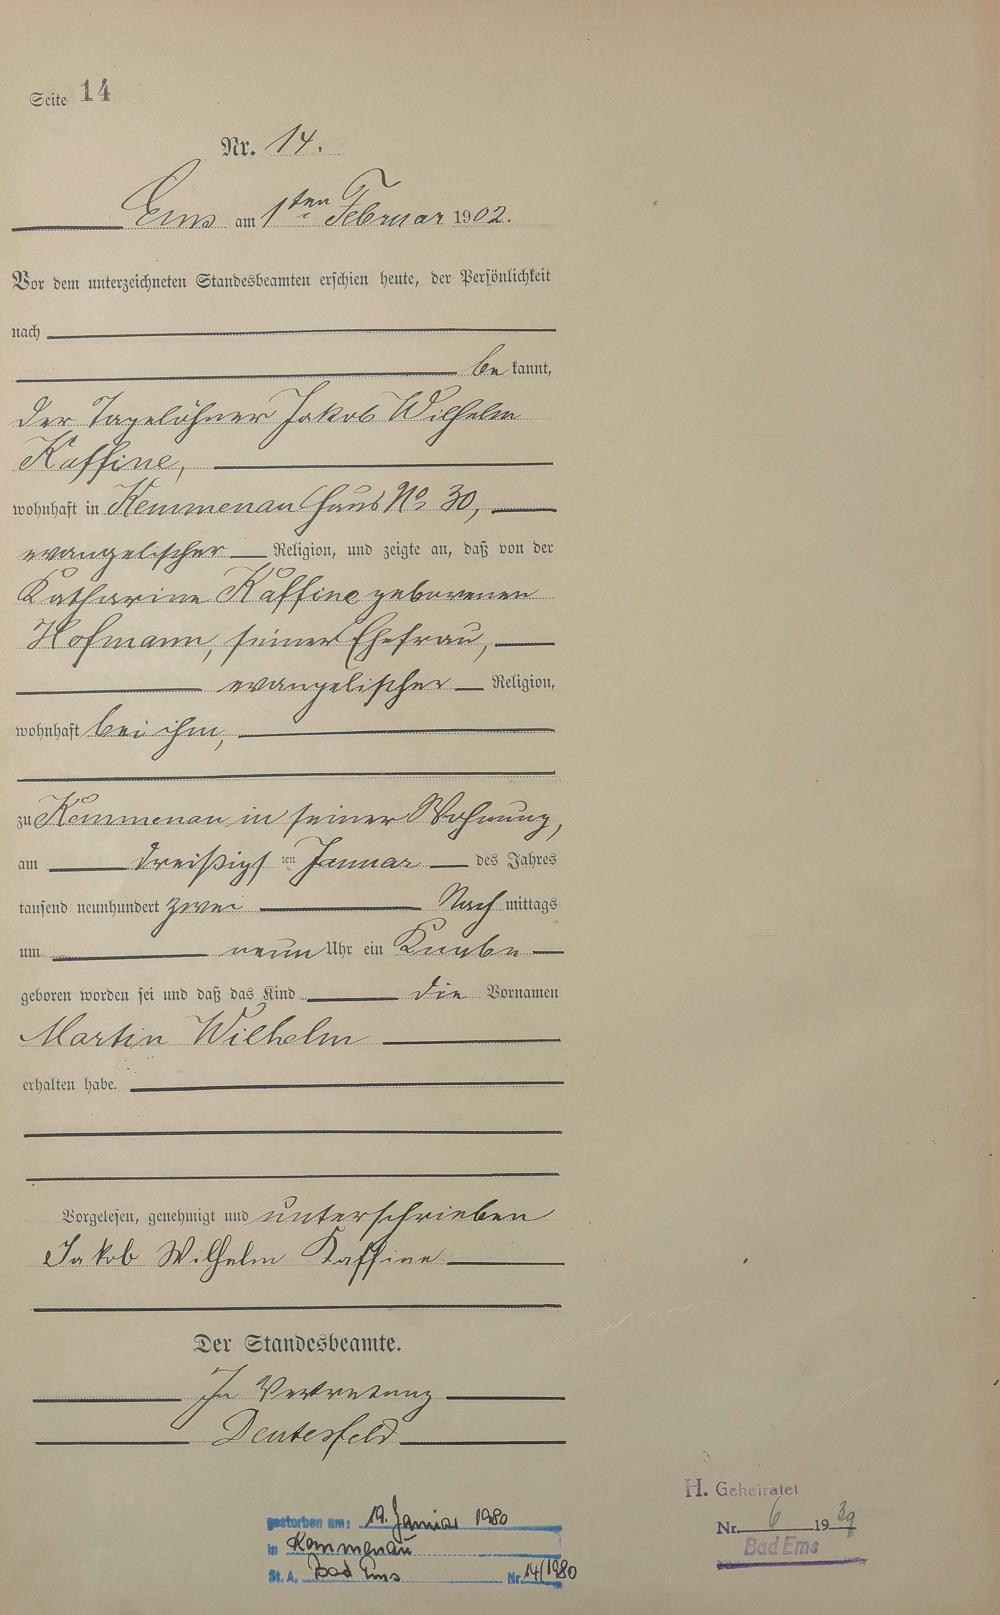 Seite 14
Nr. 14.
Ems am 1ten Februar 1902.
Vor dem unterzeichneten Standesbeamten erschien heute, der Persönlichkeit
nach
be kannt,
der Tagelöhner Jakob Wilhelm
Kaffine,
wohnhaft in Kemmenau Haus No 30,
evangelischer Religion, und zeigte an, daß von der
Katharine Kaffine geborenen
Hofmann, seiner Ehefrau,
evangelischer Religion,
wohnhaft bei ihm,
zu Kemmenau in seiner Wohnung,
am dreißigs ten Januar des Jahres
tausend neunhundert zwei Nach mittags
um neun Uhr ein Knabe
geboren worden sei und daß das Kind die Vornamen
Martin Wilhelm
erhalten habe.
Vorgelesen, genehmigt und unterschrieben
Jakob Wilhelm Kaffine
Der Standesbeamte.
In Vertretung
Deutesfeld
H. Geheiratet
Nr. 6 1939
Bad Ems
gestorben am: 19. Januar 1980
in Kemmenau
St. A. Bad Ems Nr. 14/1980